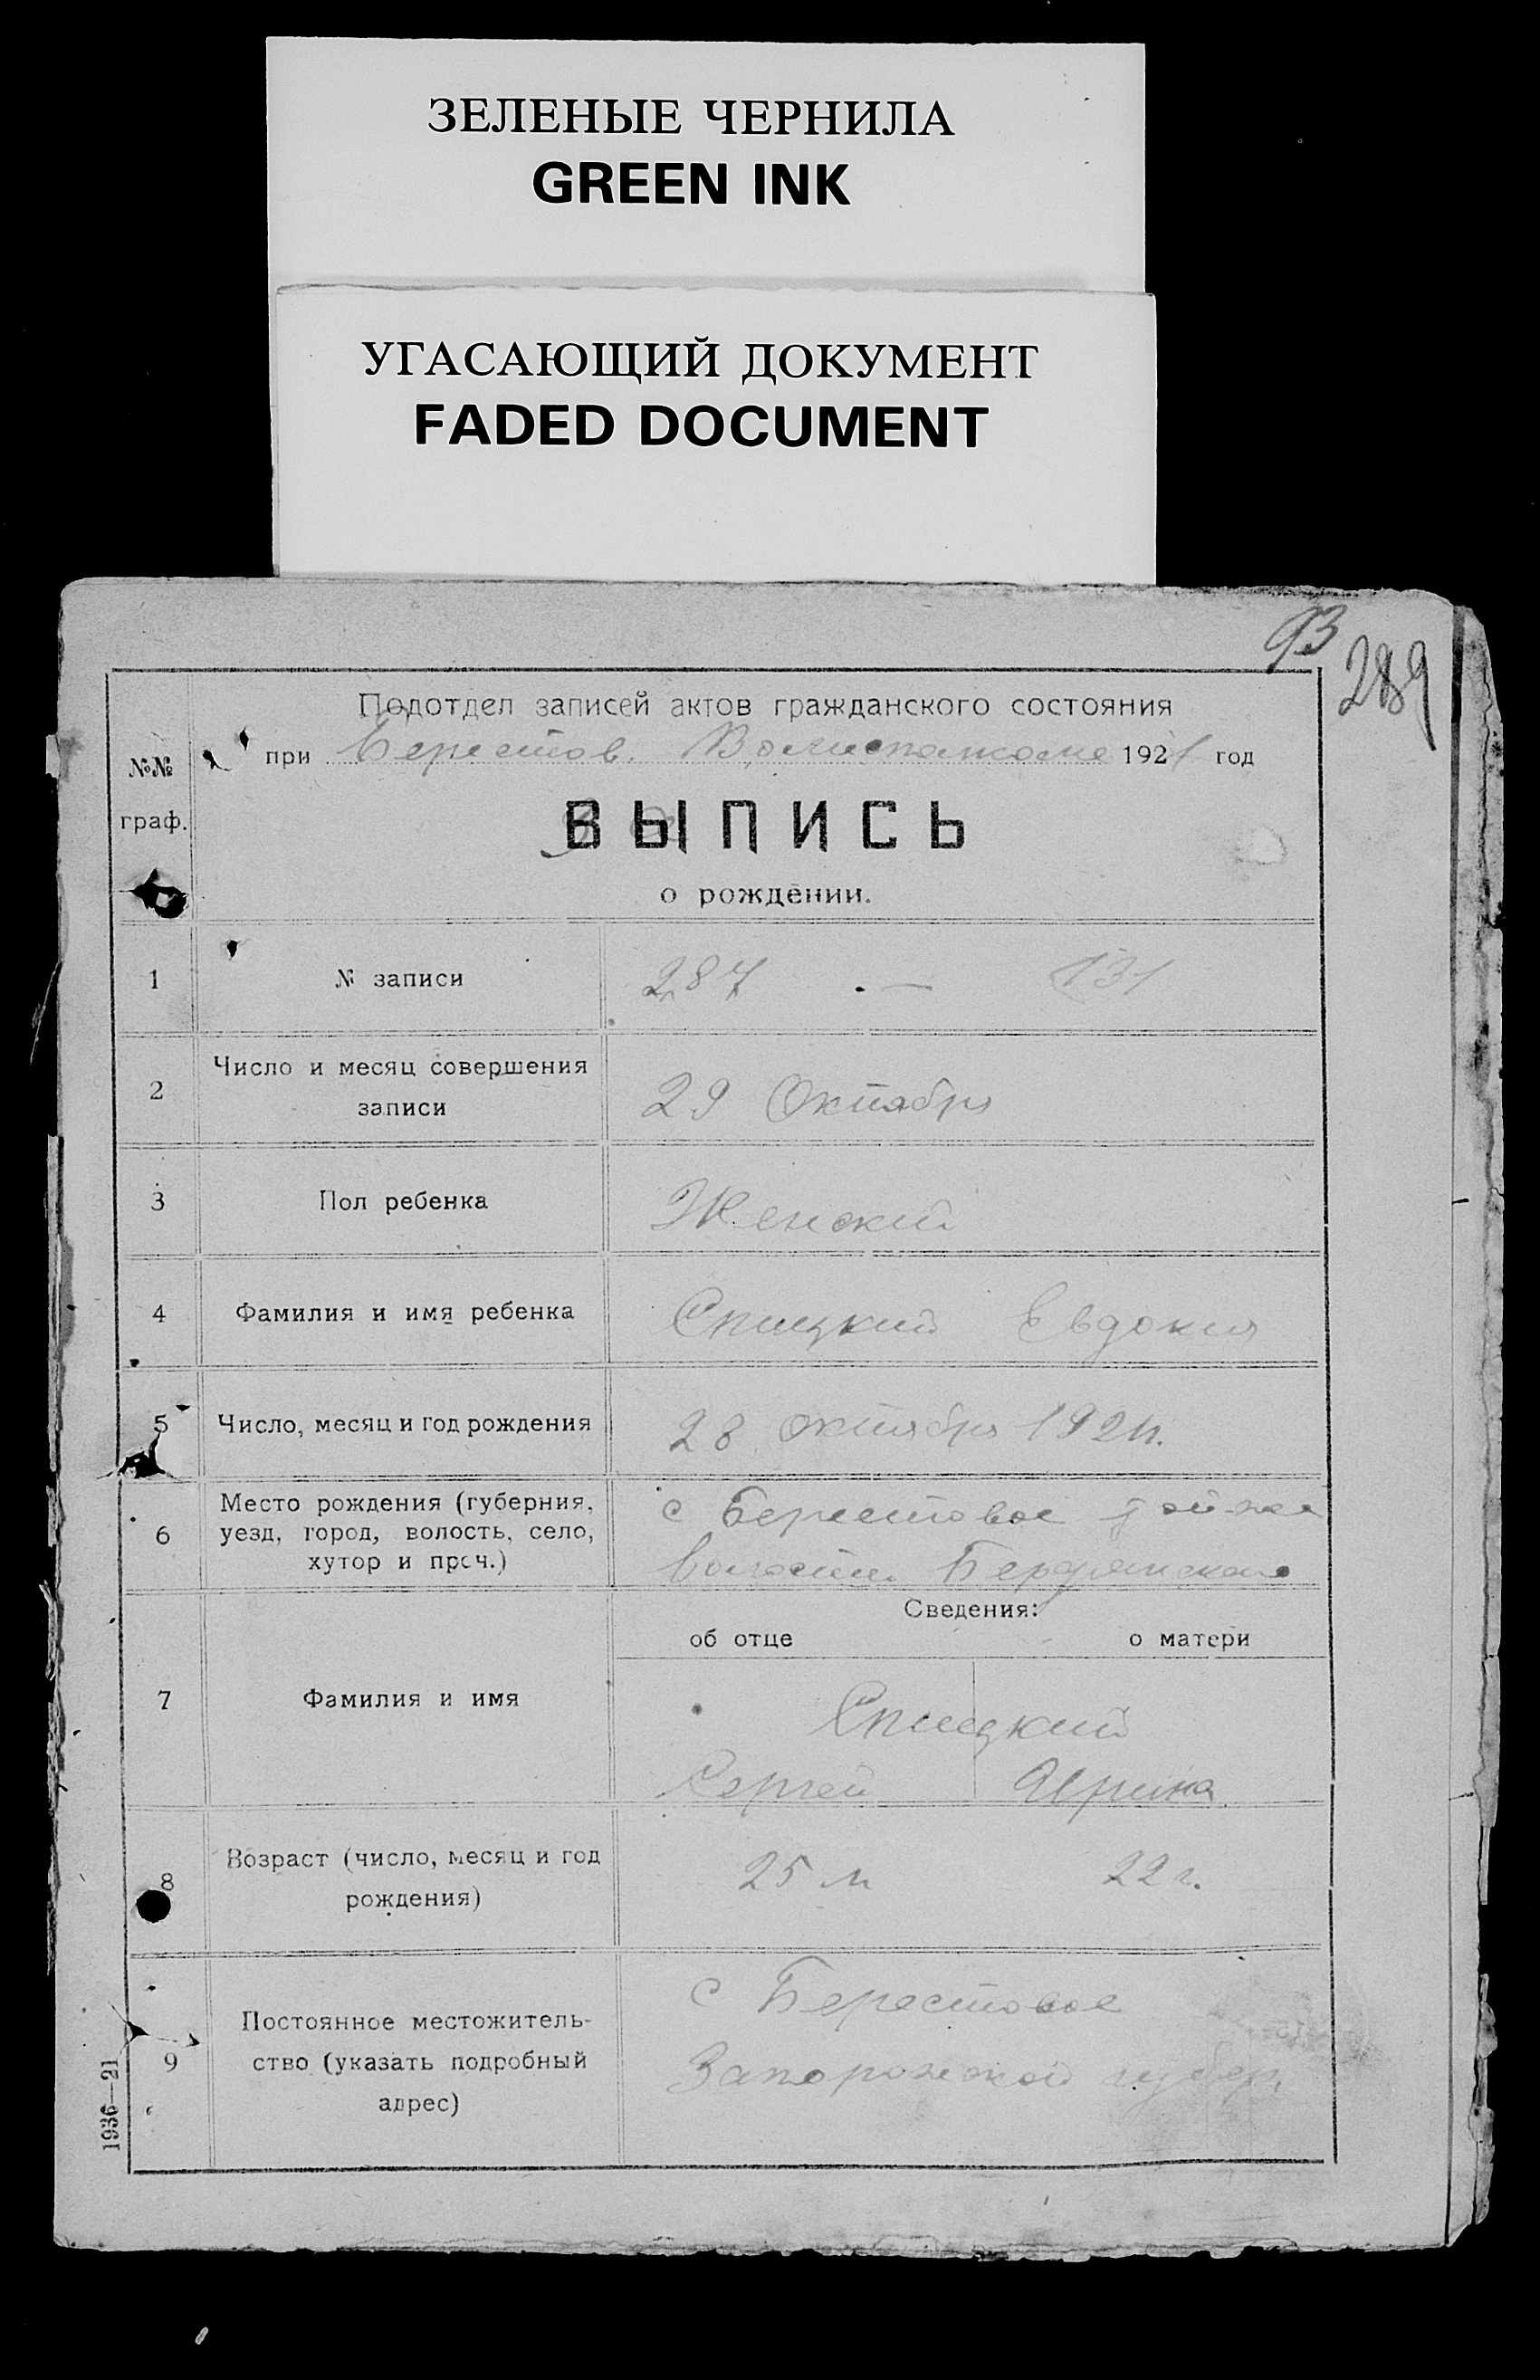 ЗЕЛЕНЫЕ ЧЕРНИЛА
GREEN INK
УГАСАЮЩИЙ ДОКУМЕНТ
FADED DOCUMENT
93
289
Подотдел записей актов гражданского состояния
№№ граф.
при Берестов. Волисполкоме 1921 год
ВЫПИСЬ
о рождении.
1 № записи 287 — 131
2 Число и месяц совершения
записи 29 Октября
3 Пол ребенка Женский
4 Фамилия и имя ребенка Спицкий Евдокия
5 Число, месяц и год рождения 28 октября 1921г.
6 Место рождения (губерния,
уезд, город, волость, село,
хутор и проч.)
с Берестовое той-же
волости Бердянского
Сведения:
об отце о матери
7 Фамилия и имя
Спицкий
Сергей Ирина
8 Возраст (число, месяц и год
рождения) 25 л 22 г.
9 Постоянное местожитель-
ство (указать подробный
адрес)
с Берестовое
Запорожской губер.
1936—21